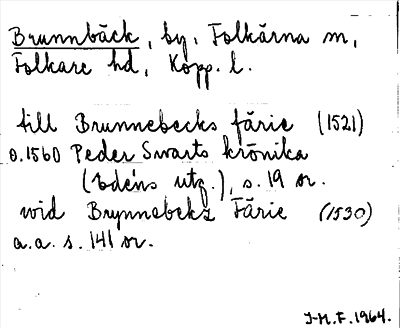 Brunnbäck, by, Folkärna sn,
Folkare hd, Kopp. l.
till Brunnebecks färie (1521)
o.1560 Peder Swarts krönika
(Edéns utg.), s. 19 or.
wid Brynnebekz Färie (1530)
a.a. s. 141 or.
J-H. F. 1964.